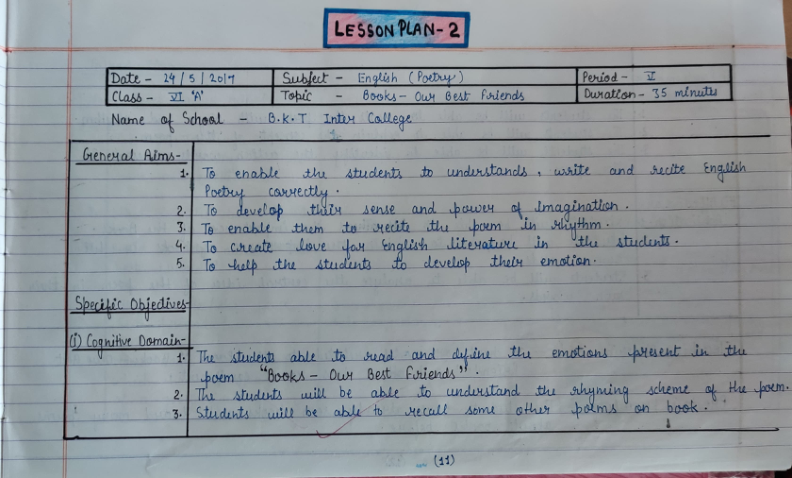 LESSON PLAN - 2
Date - 24 / 5 / 2017 Subject - English (Poetry) Period - V
Class - VI 'A' Topic - Books - Our Best Friends Duration - 35 minutes
Name of School - B.K.T Inter College
General Aims-
1. To enable the students to understands, write and recite English
Poetry correctly.
2. To develop their sense and power of Imagination.
3. To enable them to recite the poem in rhythm.
4. To create love for English literature in the students.
5. To help the students to develop their emotion.
Specific Objectives-
(i) Cognitive Domain-
1. The students able to read and define the emotions present in the
poem "Books - Our Best Friends".
2. The students will be able to understand the rhyming scheme of the poem.
3. Students will be able to recall some other poems on book.
(11)